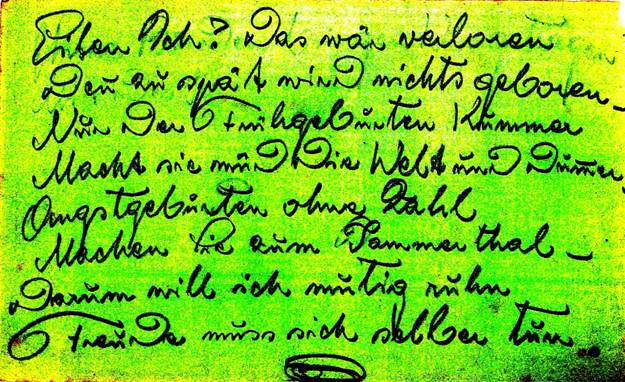 Eilen Ich? Das wär verloren
Denn zu spät wird nichts geboren –
Nur der Frühgeburten Kummer
Macht sie müd Die Welt und Dumer
Angstgeburten ohne Zahl
Machen Sie zum Jammerthal –
Darum will ich mutig ruhn
Freude muss sich selber tun